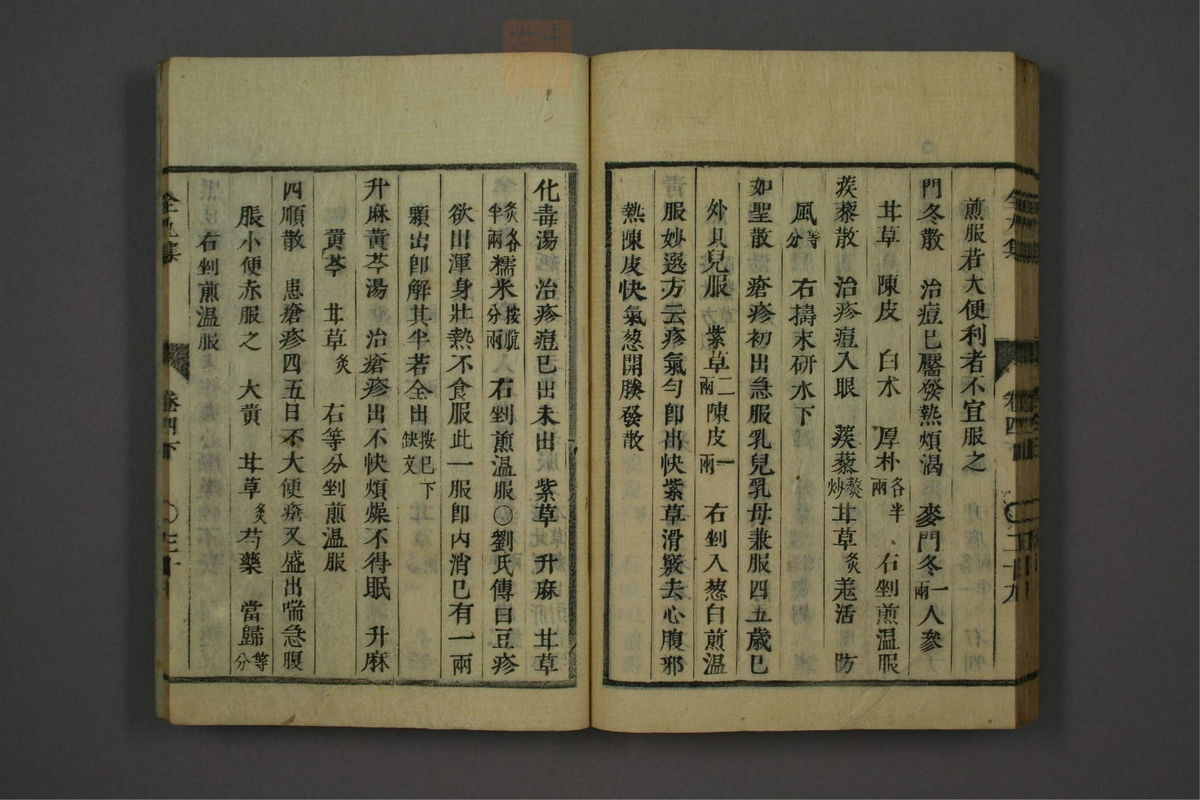 煎服若大便利者不宜服之
門冬散　治痘已靨發熱煩渴　麥門冬一兩人參
甘草　陳皮　白朮　厚朴各半兩　右剉煎溫服
蒺藜散　治疹痘入眼　蒺藜麩炒甘草炙羌活　防
風等分　右擣末研水下
如聖散　瘡疹初出急服乳兒乳母兼服四五歲已
外只兒服　紫草二兩陳皮一兩　右剉入葱白煎溫
服妙選方云疹氣勻卽出快紫草滑竅去心腹邪
熱陳皮快氣葱開腠發散
卷四下
二十九
化毒湯　治疹痘已出未出　紫草　升麻　甘草
炙各半兩糯米按脫分兩右剉煎溫服〇劉氏傳曰豆疹
欲出渾身壯熱不食服此一服卽內消已有一兩
顆出卽解其半若全出按已下缺文
升麻黃芩湯　治瘡疹出不快煩燥不得眠　升麻
黃芩　甘草炙　右等分剉煎溫服
四順散　患瘡疹四五日不大便瘡又盛出喘急腹
脹小便赤服之　大黃　甘草炙芍藥　當歸等分
右剉煎溫服
卷四下